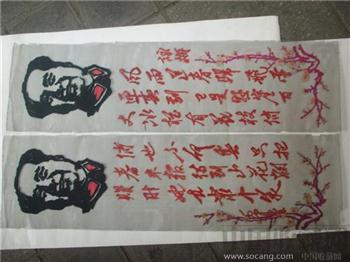 咏梅
风雨送春归飞雪
迎春到已是悬崖百
丈冰犹有花枝俏
俏也不争春只把
春来报待到山花烂
漫时她在丛中笑
www.socang.com 中国收藏网